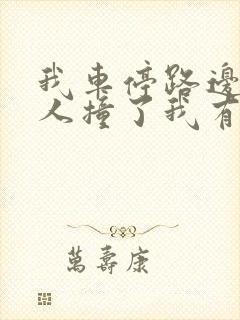 我車停路邊
人撞了我有
萬壽康